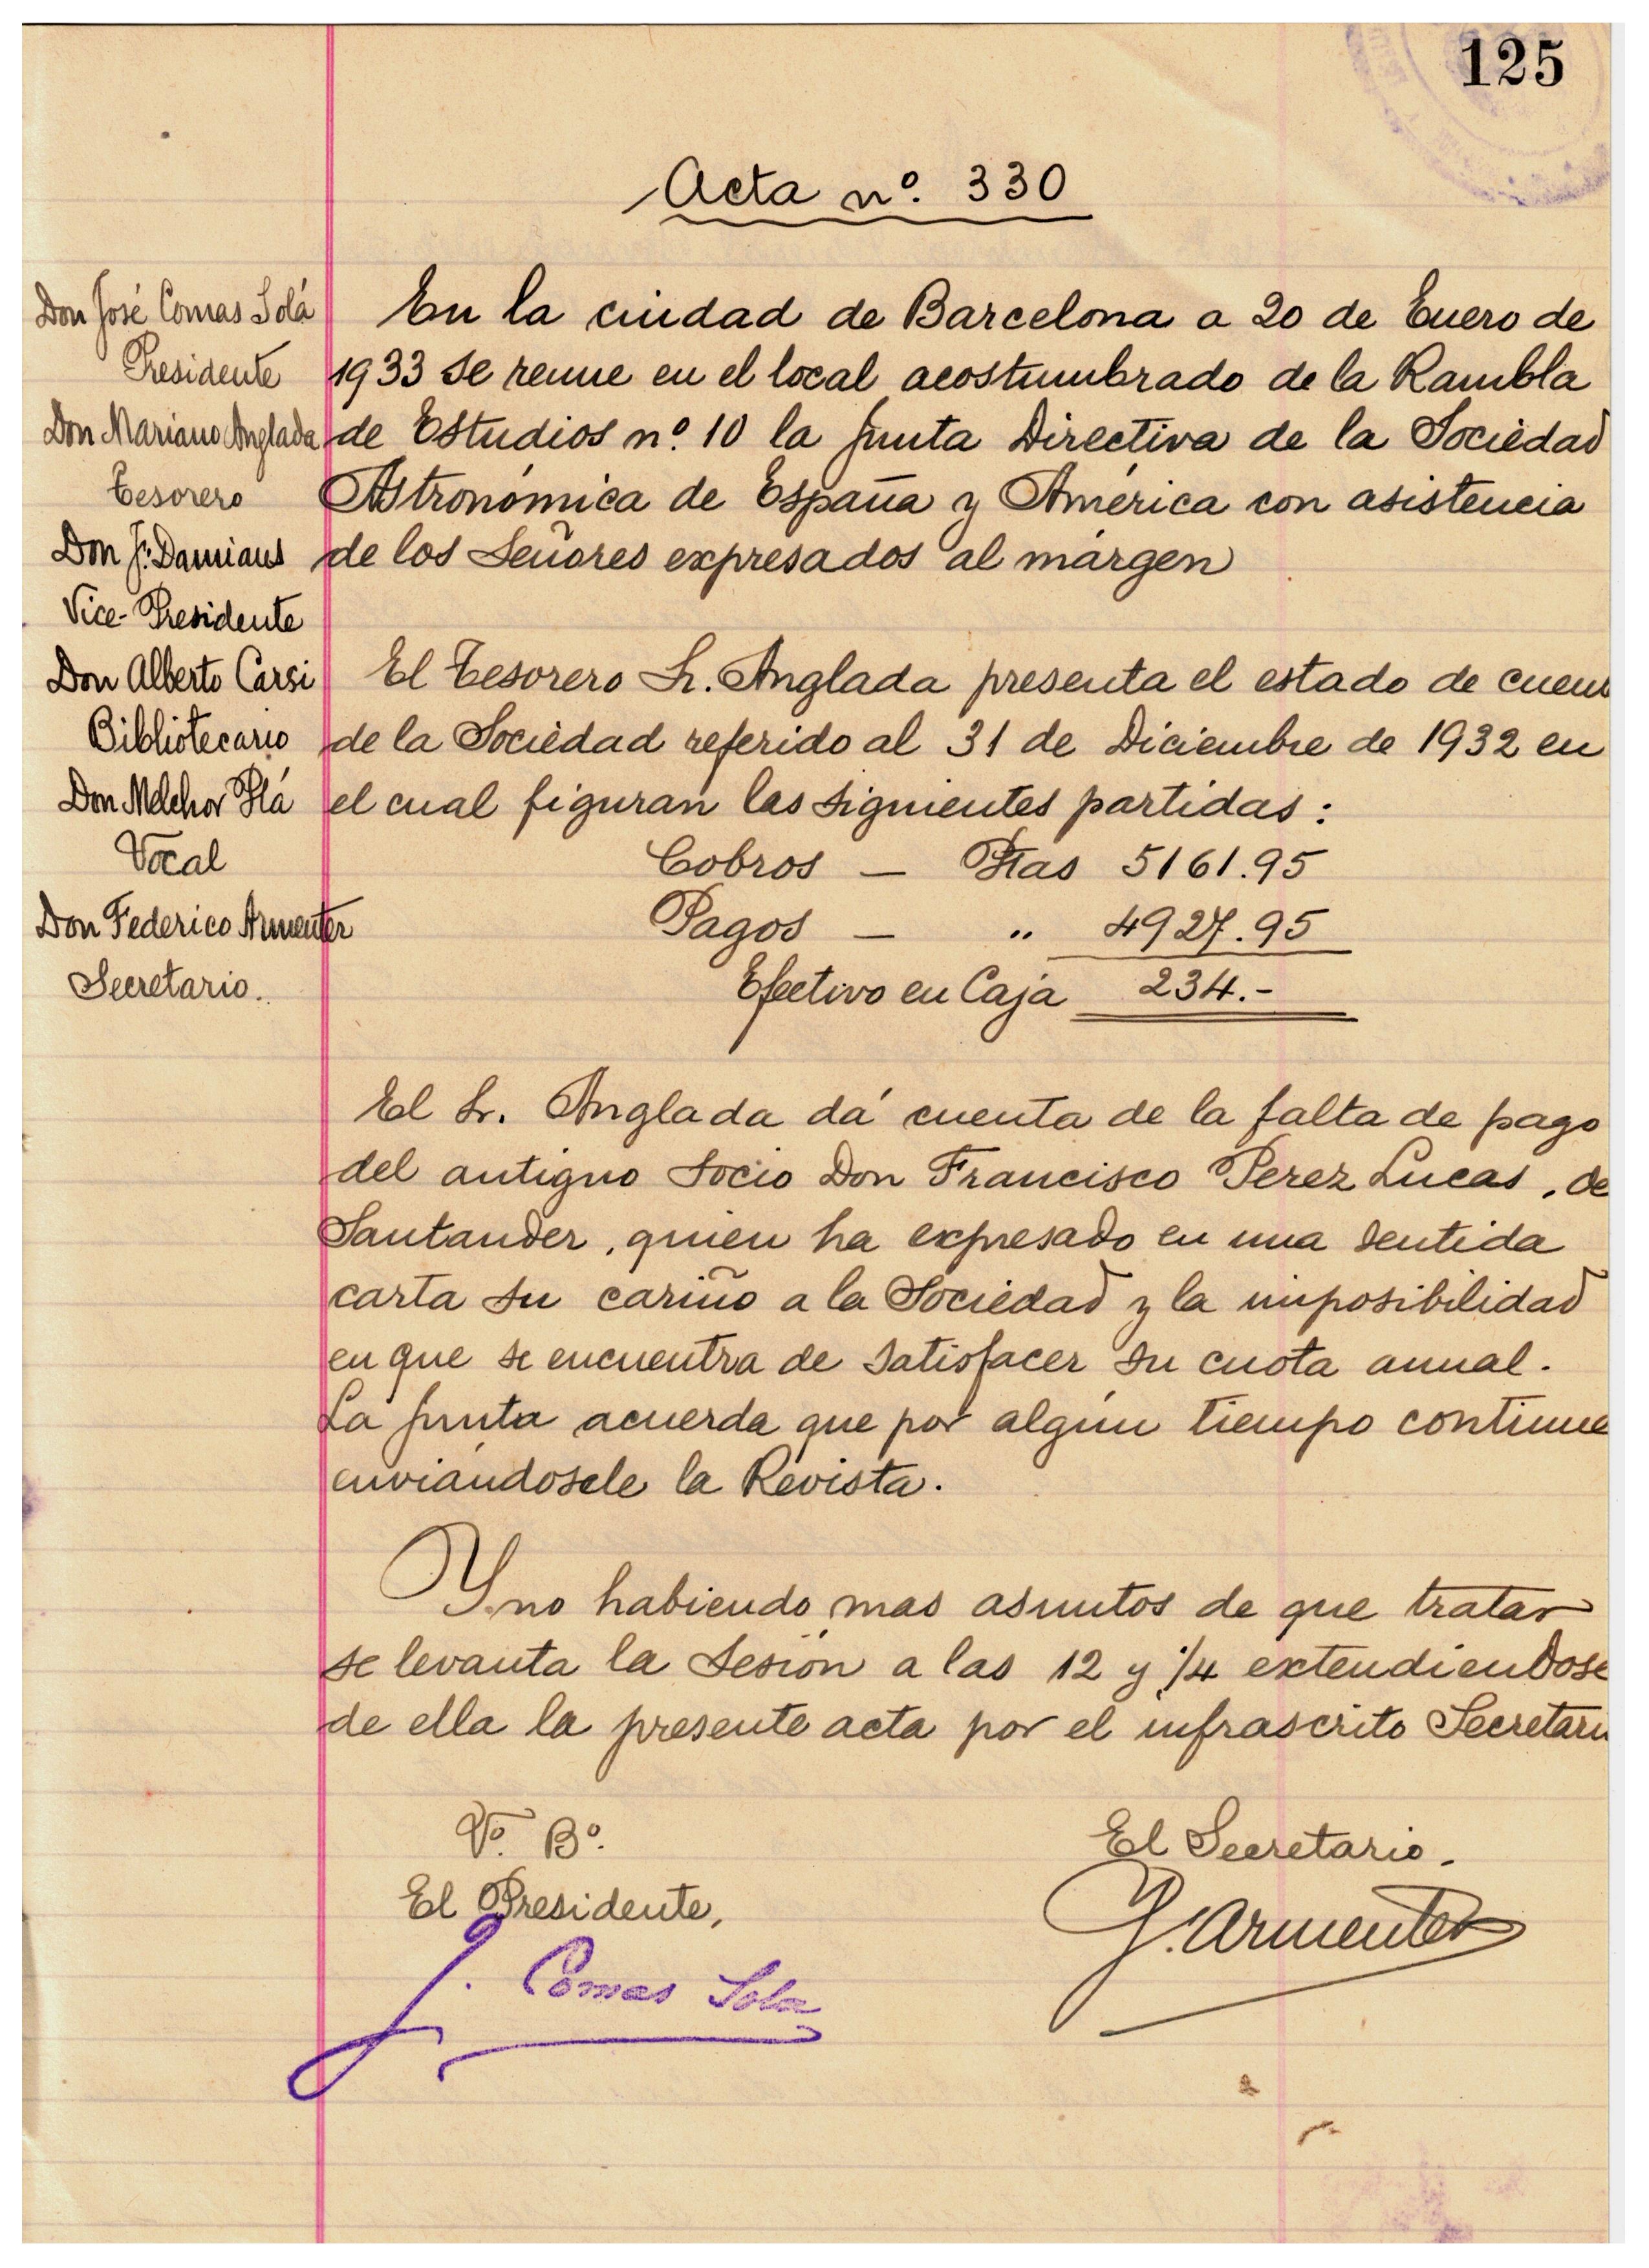 125
Acta nº. 330
Don José Comas Solá
Presidente
Don Mariano Anglada
Tesorero
Don J. Damians
Vice-Presidente
Don Alberto Carsi
Bibliotecario
Don Melchor Plá
Vocal
Don Federico Armenter
Secretario.
En la ciudad de Barcelona a 20 de Enero de
1933 se reune en el local acostumbrado de la Rambla
de Estudios nº. 10 la Junta Directiva de la Sociedad
Astronómica de España y América con asistencia
de los Señores expresados al márgen
El Tesorero Sr. Anglada presenta el estado de cuen
de la Sociedad referido al 31 de Diciembre de 1932 en
el cual figuran las siguientes partidas :
Cobros — Ptas 5161.95
Pagos — " 4927.95
Efectivo en Caja 234.-
El Sr. Anglada dá cuenta de la falta de pago
del antiguo socio Don Francisco Perez Lucas, de
Santander, quien ha expresado en una sentida
carta su cariño a la Sociedad y la imposibilidad
en que se encuentra de satisfacer su cuota anual.
La Junta acuerda que por algún tiempo continue
enviándosele la Revista.
Y no habiendo mas asuntos de que tratar
se levanta la sesión a las 12 y 1/4 extendiendose
de ella la presente acta por el infrascrito Secretari
Vº. Bº.
El Presidente,
J. Comas Solá
El Secretario.
F. Armenter